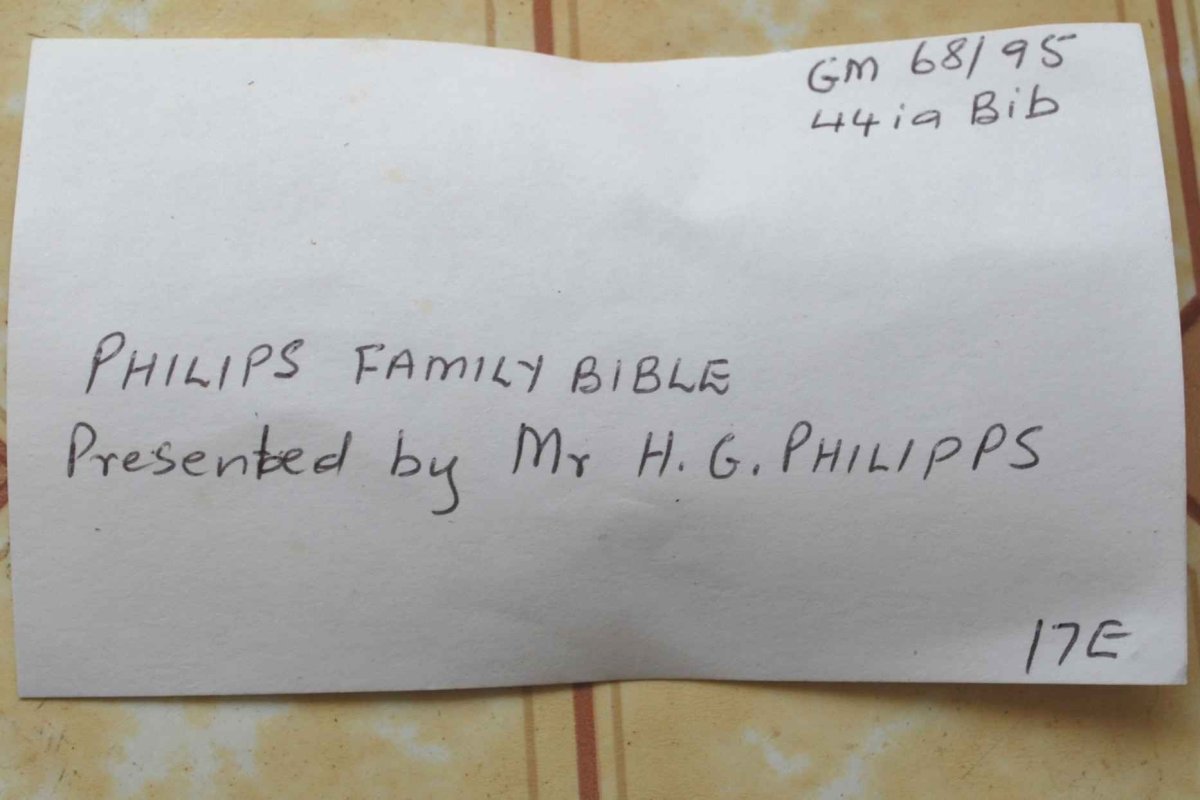 GM 68/95
44ia Bib
PHILIPS FAMILY BIBLE
Presented by Mr H. G. PHILIPPS
17E